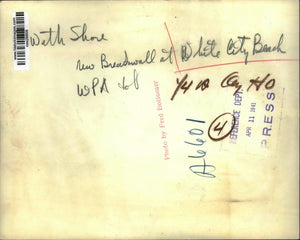 With Shore
new Breadwall at White City Beach
WPA 68
1/4 10
A6601
4
Photo by Fred Bottomer
REFERENCE DEPT.
APR 11 1941
PRESS